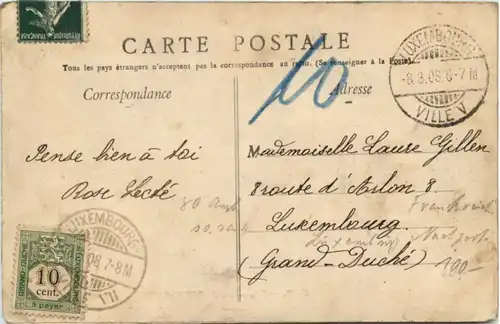 CARTE POSTALE
Tous les pays étrangers n'acceptent pas la correspondance au recto. (Se renseigner à la Poste).
Correspondance
Adresse
10
LUXEMBOURG
-8.8.08.6-7M
VILLE V
Pense bien à toi
Rose Lecté
Mademoiselle Laure Gillen
8 route d'Arlon 8
Luxembourg
(Grand-Duché)
Frankreich
Nachport
100-
LUXEMBOURG
08.7-8M
10
cent.
à payer